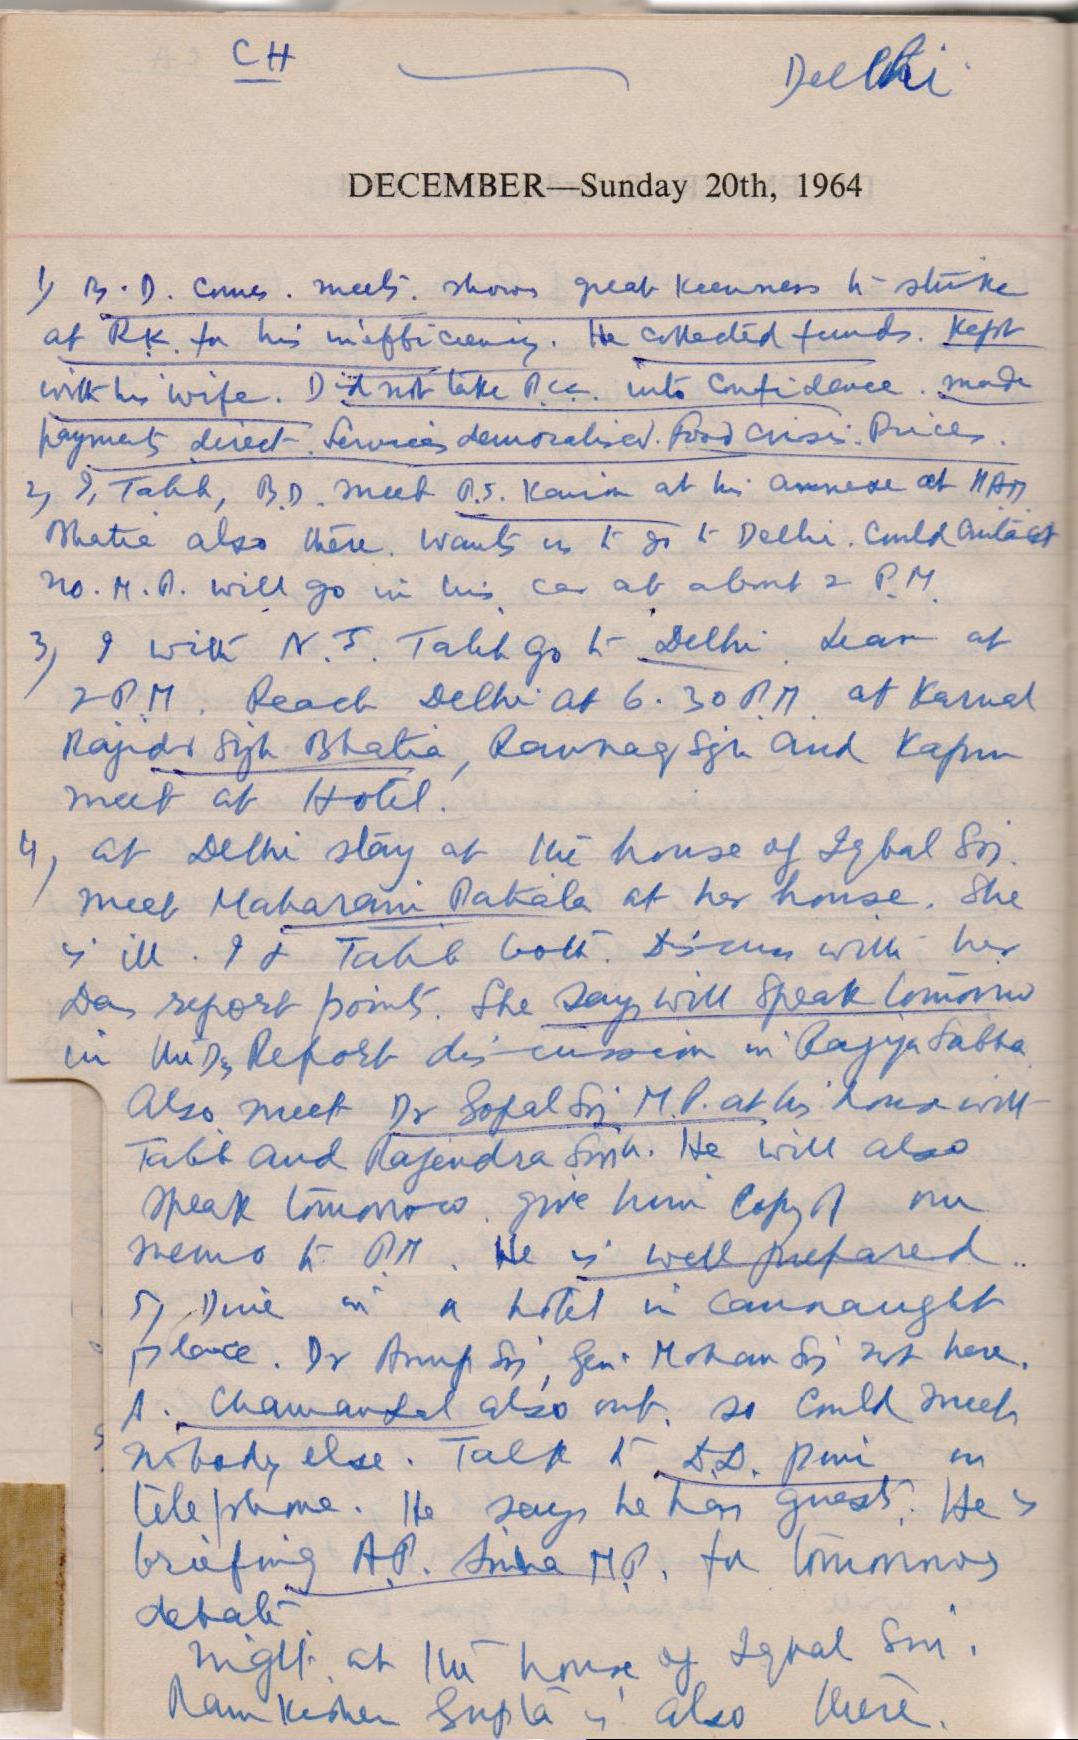 CH Delhi
DECEMBER—Sunday 20th, 1964
1) B.D. comes. meets. shows great keenness to strike
at R.K. for his inefficiency. He collected funds. Kept
with his wife. Did not take P.C.C. into confidence. made
payments direct. Services demoralised. Food crisis. Prices.
2) I, Talib, B.D. meet P.S. Kairon at his annexe at MAM
Bhatia also there. Wants us to go to Delhi. Could contact
no. M.P. will go in his car at about 2 P.M.
3) I with N.S. Talib go to Delhi. Leave at
2 P.M. Reach Delhi at 6.30 P.M. at Karnal
Rajindr Sigh Bhatia, Raunaq Sgh and Kapur
meet at Hotel.
4) at Delhi stay at the house of Iqbal Sin.
meet Maharani Patiala at her house. She
is ill. I & Talib both. Discuss with her
Das report points. She says will speak tomorrow
in the Ds Report discussion in Rajya Sabha
Also meet Dr Gopal Sij M.P. at his house with
Talib and Rajendra Singh. He will also
speak tomorrow. give him copy of our
memo to P.M. He is well prepared..
5) Dine in a hotel in Cannaught
place. Dr Anup Sij, Gen. Mohan Sij not here.
Chamanlal also out. so could meet
nobody else. Talk to D.D. Puri on
telephone. He says he has guests. He is
briefing A.P. Sinha M.P. for tomorrows
debate
night at the house of Iqbal Sin.
Ram Kishen Gupta is also there.